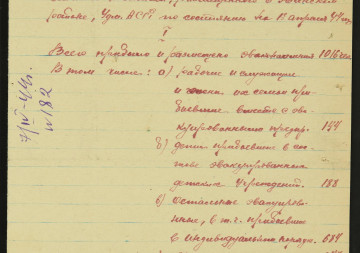 районе, Удм. АССР по состоянию на 1 апреля 44 года
I
Всего прибыло и размещено эваконаселения 1016 чел.
В том числе: а) рабочие и служащие
и члены их семей при-
бывшие вместе с эва-
куированными предпр. 154
б) дети прибывшие в сос-
таве эвакуированных
детских учреждений. 188
в) остальное эвакуирован-
ное, в т.ч. прибывшие
в индивидуальном порядк. 684
7/IV-44г.
№182